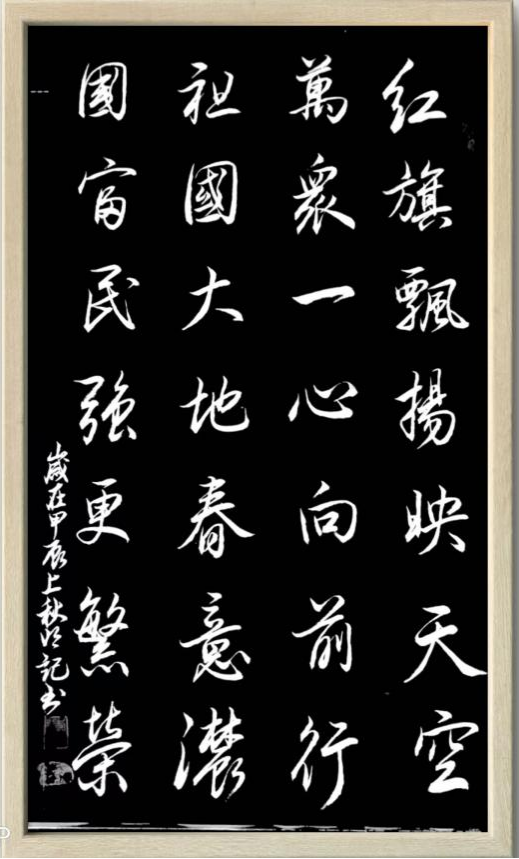 紅旗飄揚映天空
萬眾一心向前行
祖國大地春意濃
國富民強更繁榮
歲在甲辰上秋
記書